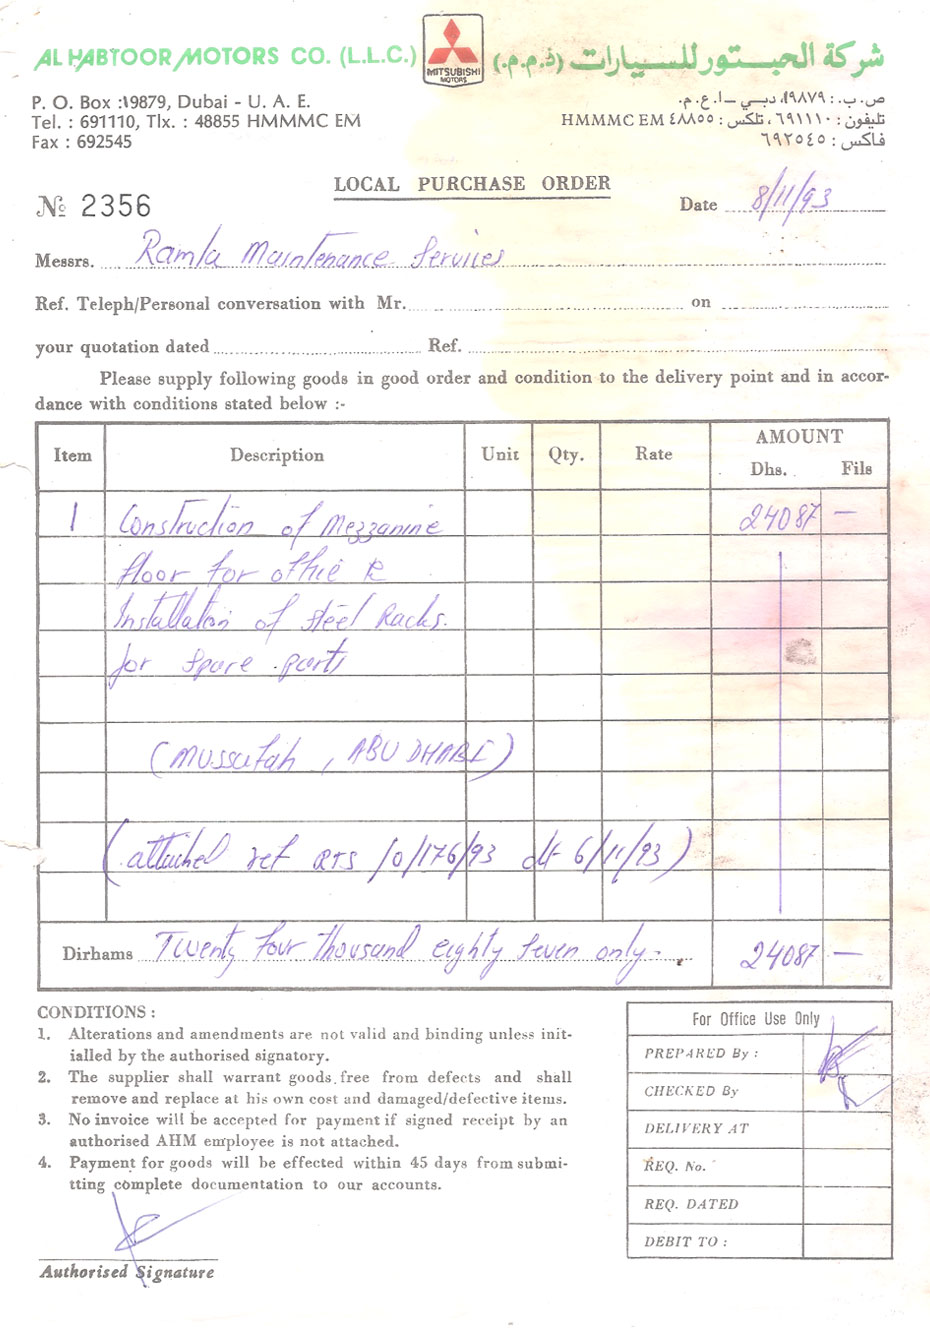 AL HABTOOR MOTORS CO. (L.L.C.)
MITSUBISHI
MOTORS
شركة الحبتور للسيارات (ذ.م.م.)
P. O. Box :19879, Dubai - U. A. E.
Tel. : 691110, Tlx. : 48855 HMMMC EM
Fax : 692545
ص.ب. : ١٩٨٧٩، دبي – ا.ع.م.
تليفون : ٦٩١١١٠، تلكس : ٤٨٨٥٥ HMMMC EM
فاكس : ٦٩٢٥٤٥
LOCAL PURCHASE ORDER
№ 2356
Date 8/11/93
Messrs. Ramla Maintenance Services
Ref. Teleph/Personal conversation with Mr. on
your quotation dated Ref.
Please supply following goods in good order and condition to the delivery point and in accor-
dance with conditions stated below :-
Item Description Unit Qty. Rate AMOUNT
Dhs. Fils
1 Construction of Mezzanine 24087 —
floor for office &
Installation of steel Racks.
for spare parts
(Mussafah, ABU DHABI)
(attached ref RTS /0/176/93 dt 6/11/93)
Dirhams Twenty four thousand eighty seven only. 24087 —
CONDITIONS :
1. Alterations and amendments are not valid and binding unless init-
ialled by the authorised signatory.
2. The supplier shall warrant goods free from defects and shall
remove and replace at his own cost and damaged/defective items.
3. No invoice will be accepted for payment if signed receipt by an
authorised AHM employee is not attached.
4. Payment for goods will be effected within 45 days from submi-
tting complete documentation to our accounts.
Authorised Signature
For Office Use Only
PREPARED By :
CHECKED By
DELIVERY AT
REQ. No.
REQ. DATED
DEBIT TO :